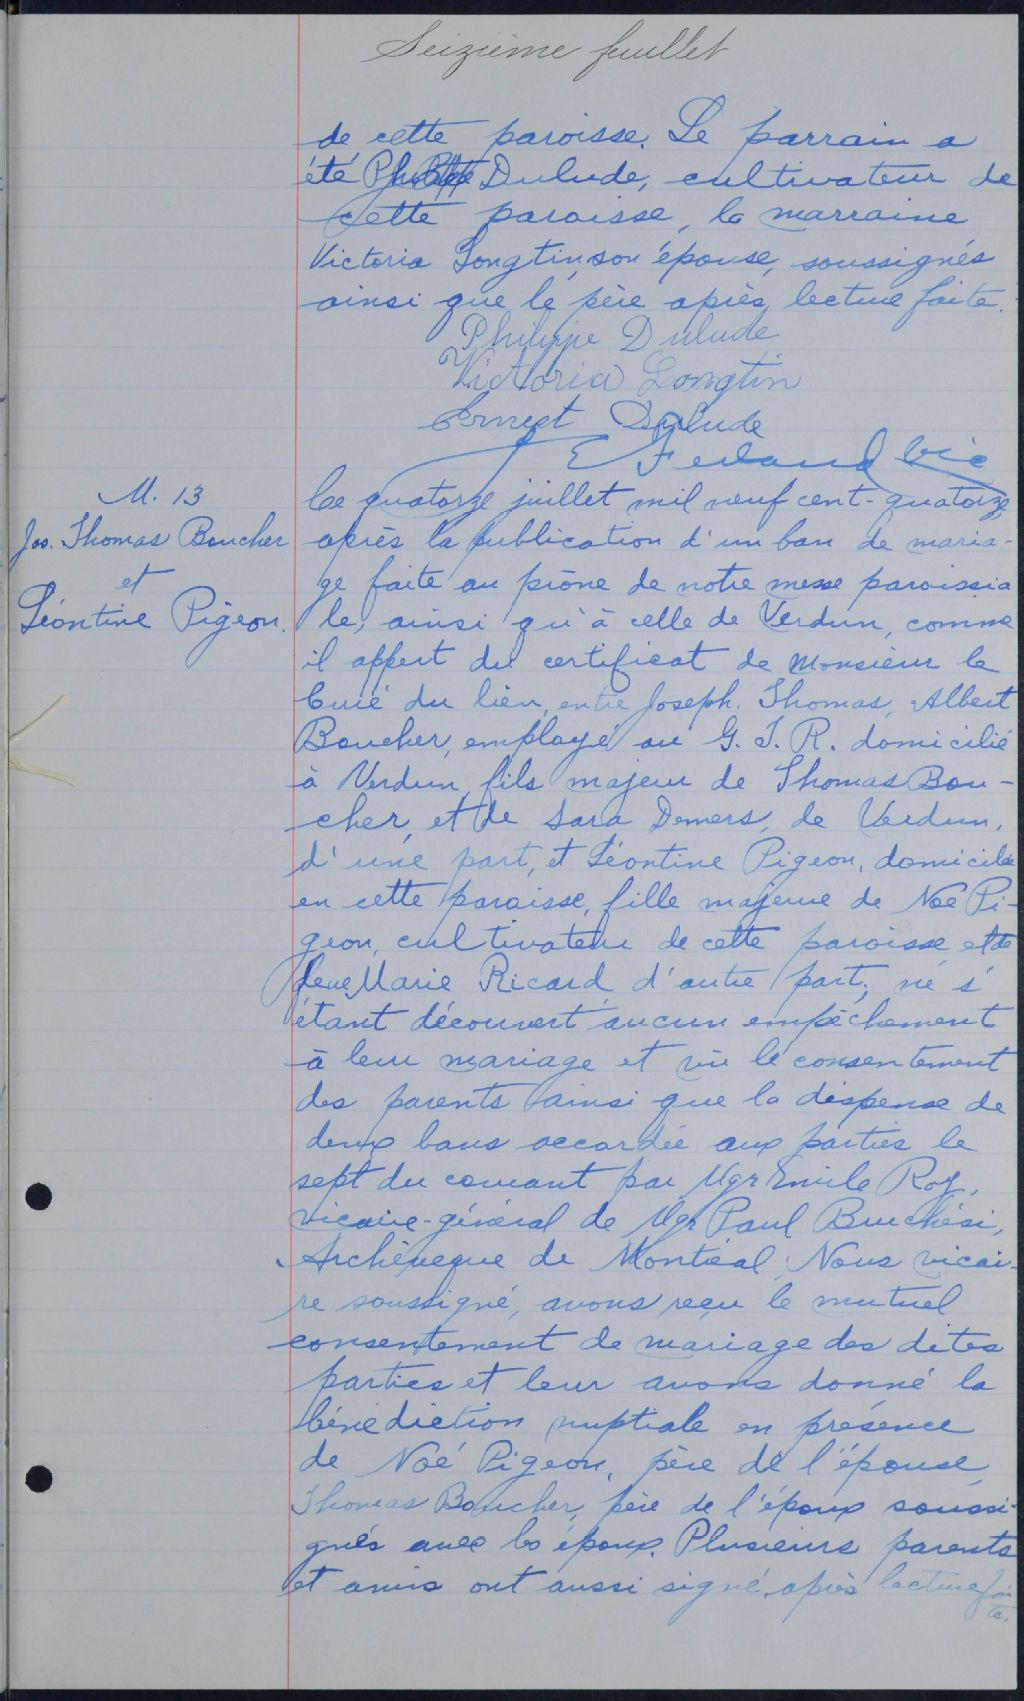 Seizième feuillet
de cette paroisse. Le parrain a
été Dulude, cultivateur de
cette paroisse, la marraine
Victoria Longtin, son épouse, soussignés
ainsi que le père après lecture faite.
Philippe Dulude
Victoria Longtin
Ernest Dulude
E Ferland vic
M. 13
Jos. Thomas Boucher
et
Léontine Pigeon.
Le quatorze juillet mil neuf cent-quatorze,
après la publication d'un ban de maria-
ge faite au prône de notre messe paroissia
le, ainsi qu'à celle de Verdun, comme
il appert du certificat de Monsieur le
Curé du lieu, entre Joseph, Thomas, Albert
Boucher, employé au G. T. R. domicilié
à Verdun, fils majeur de Thomas Bou-
cher, et de Sara Demers, de Verdun,
d'une part, et Léontine Pigeon, domiciliée
en cette paroisse, fille majeure de Noé Pi-
geon, cultivateur de cette paroisse et de
feue Marie Ricard d'autre part; ne s'
étant découvert aucun empêchement
à leur mariage et vu le consentement
des parents ainsi que la dispense de
deux bans accordée aux parties le
sept du courant par Mgr Emile Roy,
vicaire-général de Mgr Paul Bruchési,
Archevêque de Montréal, Nous vicai-
re soussigné, avons reçu le mutuel
consentement de mariage des dites
parties et leur avons donné la
bénédiction nuptiale en présence
de Noé Pigeon, père de l'épouse,
Thomas Boucher, père de l'époux soussi-
gnés avec les époux. Plusieurs parents
et amis ont aussi signé, après lecture fai
te.